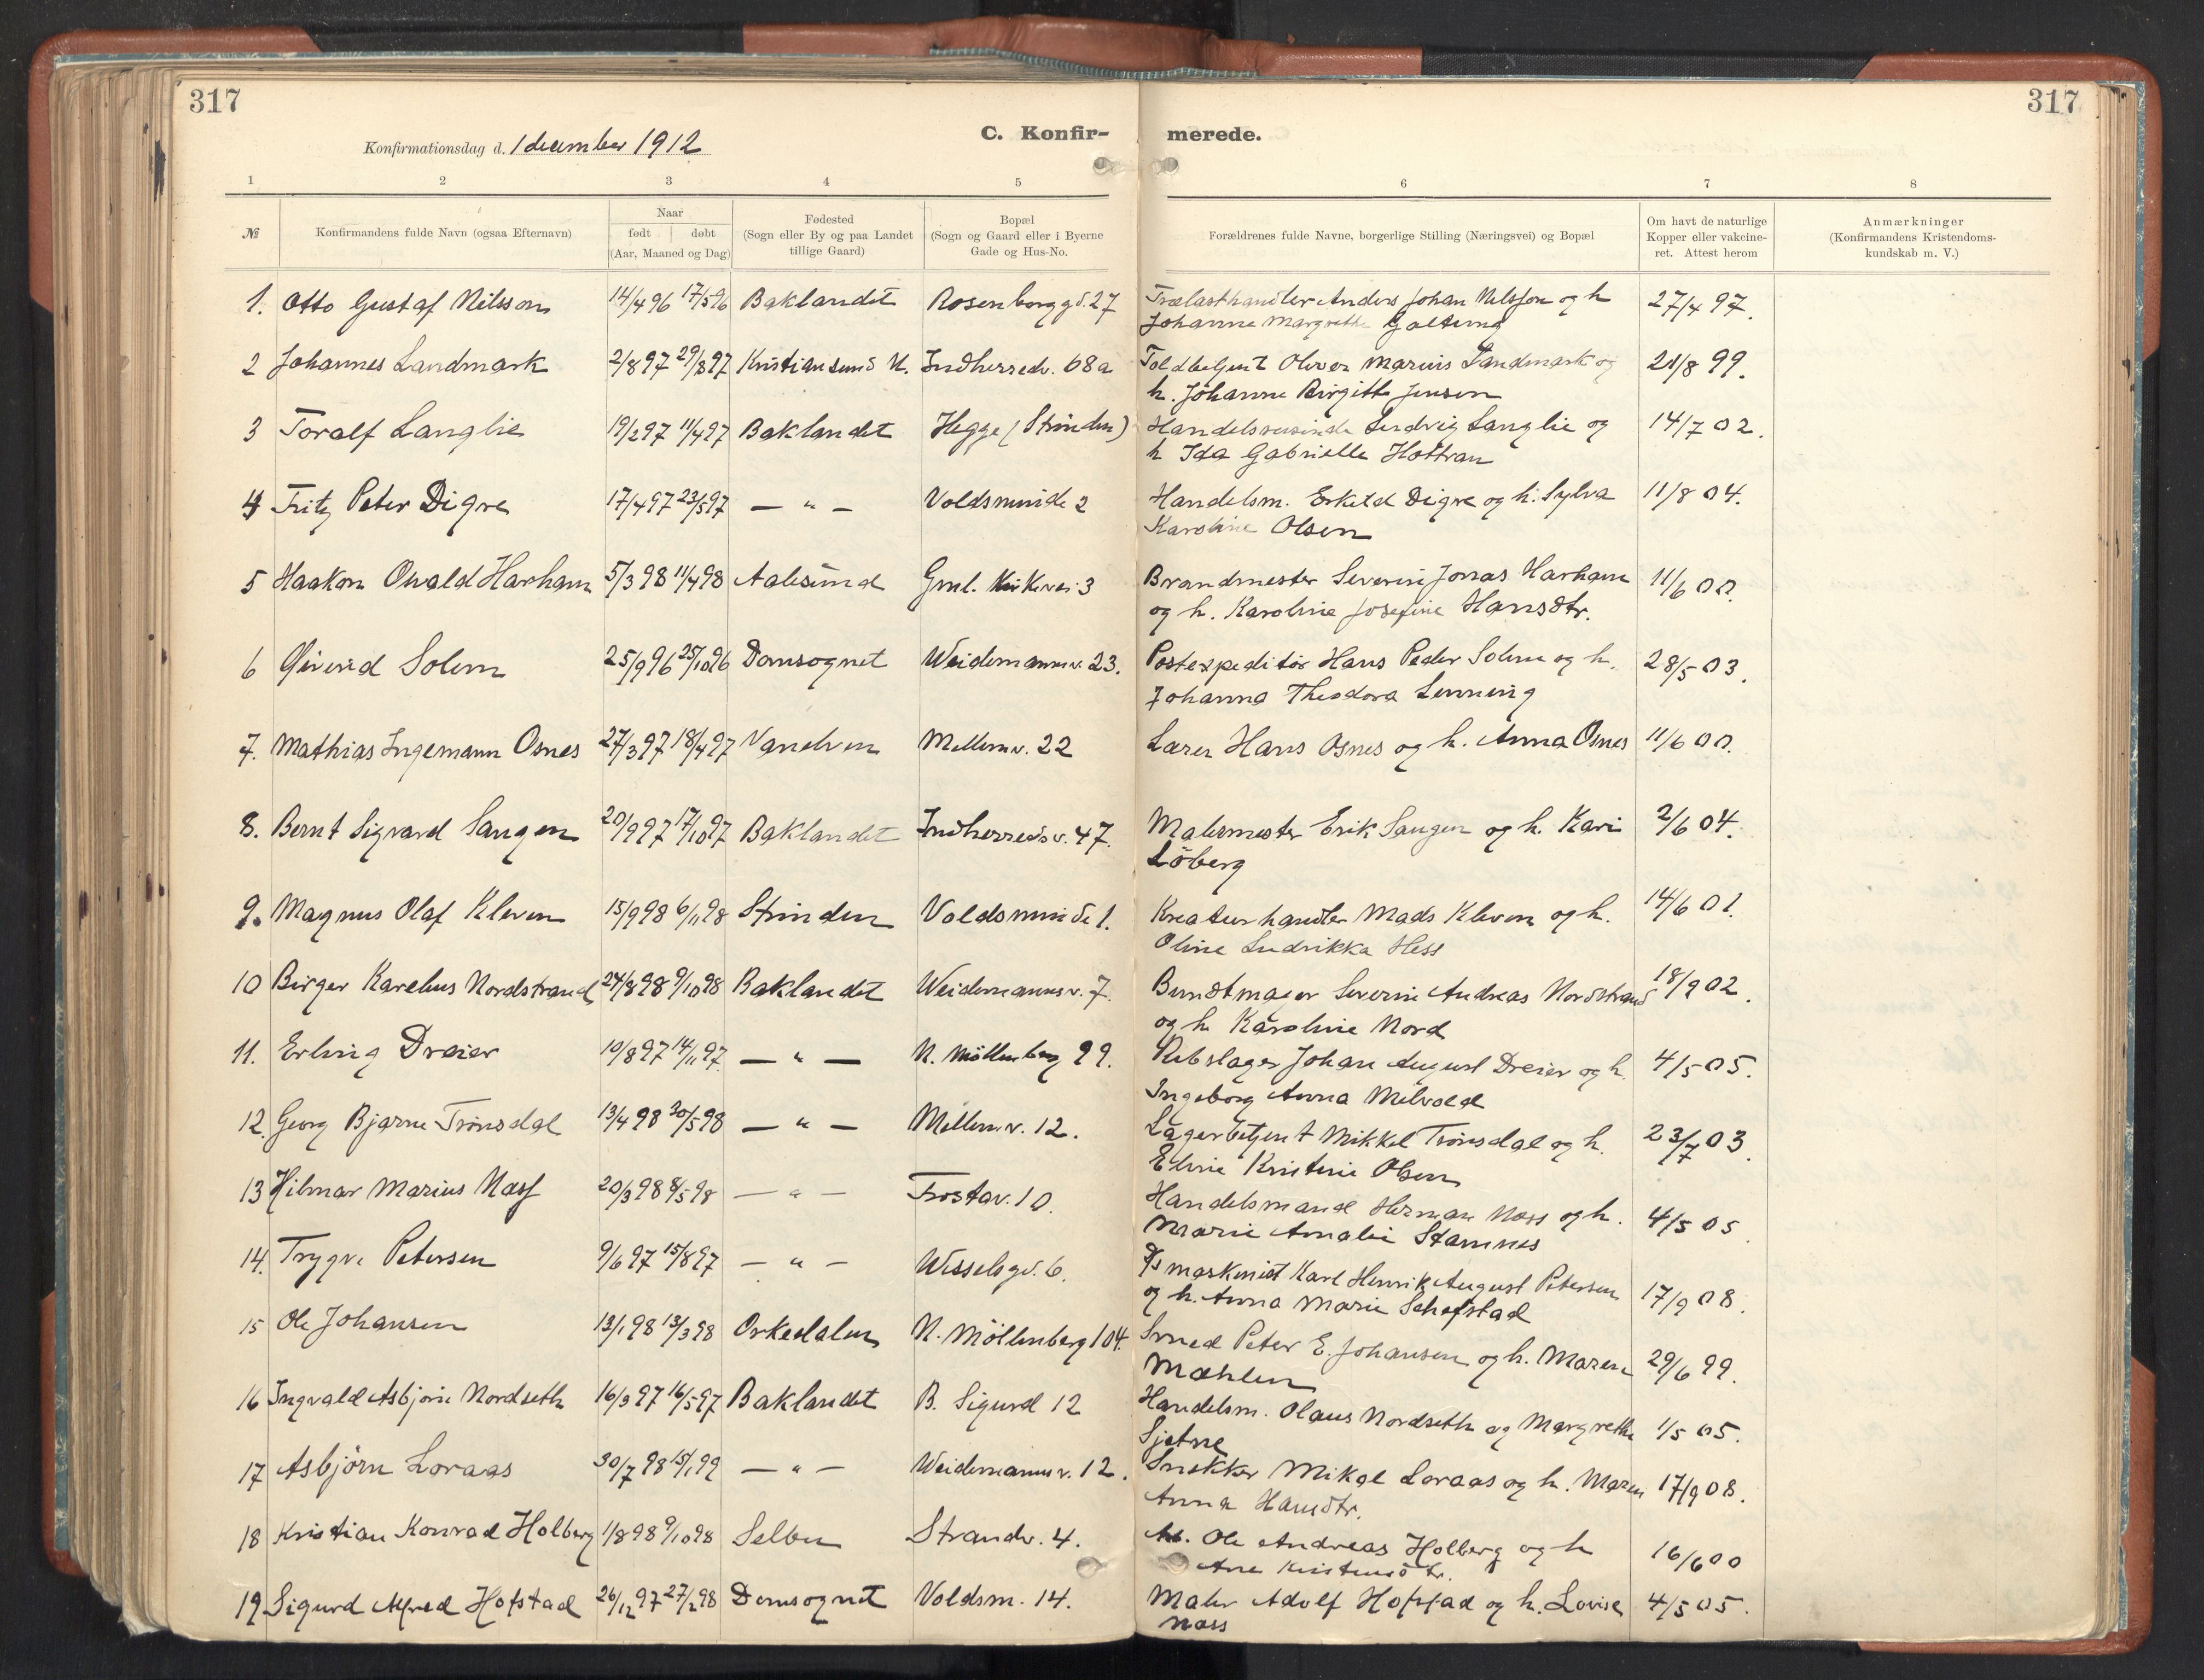 317
317
Konfirmationsdag d. 1 december 1912
C. Konfir- merede.
1 2 3 4 5 6 7 8
№ Konfirmandens fulde Navn (ogsaa Efternavn) Naar født døbt (Aar, Maaned og Dag) Fødested (Sogn eller By og paa Landet tillige Gaard) Bopæl (Sogn og Gaard eller i Byerne Gade og Hus-No. Forældrenes fulde Navne, borgerlige Stilling (Næringsvei) og Bopæl Om havt de naturlige Kopper eller vakcineret. Attest herom Anmærkninger (Konfirmandens Kristendomskundskab m. V.)
1. Otto Gustaf Nilsson 14/4 96 17/5 96 Baklandet Rosenborggd. 27 Trælasthandler Anders Johan Nilsson og h 27/4 97.
Johanne Margrethe Galtung
2 Johannes Landmark 2/8 97 29/8 97 Kristiansund N. Indherredv. 68a Toldbetjent Oliver Marius Landmark og 21/8 99.
h. Johanne Birgitte Jensen
3 Toralf Langlie 19/2 97 11/4 97 Baklandet Hegge (Strinden) Handelsreisende Ludvig Langlie og 14/7 02.
h Ida Gabrielle Hottran
4 Fritz Peter Digre 17/4 97 23/5 97 — " — Voldsminde 2 Handelsm. Eskild Digre og h. Sylva 11/8 04.
Karoline Olsen
5 Haakon Osvald Harham 5/3 98 11/4 98 Aalesund Gml. Kirkevei 3 Brandmester Severin Jonas Harham 11/6 00.
og h. Karoline Josefine Hansdtr.
6 Øivind Solem 25/9 96 25/10 96 Domsognet Weidemannsv. 23. Postexpeditör Hans Peder Solem og h. 28/5 03.
Johanna Theodora Lenning
7. Mathias Ingemann Osnes 27/3 97 18/4 97 Vanelven Mellemv. 22 Lærer Hans Osnes og h. Anna Osnes 11/6 00.
8. Bernt Sigvard Saugen 20/9 97 17/10 97 Baklandet Indherredsv. 47. Malermester Erik Saugen og h. Kari 2/6 04.
Löberg
9. Magnus Olaf Kleven 15/9 98 6/11 98 Strinden Voldsminde 1. Kreaturhandler Mads Kleven og h. 14/6 01.
Oline Ludrikka Hess
10 Birger Karelius Nordstrand 24/8 98 9/10 98 Baklandet Weidemannsv. 7. Bundtmager Severin Andreas Nordstrand 18/9 02.
og h. Karoline Nord
11. Erling Dreier 10/8 97 14/11 97 — " — N. Möllenberg 99. Rebslager Johan August Dreier og h. 4/5 05.
Ingeborg Anna Melvold
12. Georg Bjarne Trönsdal 13/4 98 30/5 98 — " — Mellemv. 12. Lagerbetjent Mikkel Trönsdal og h. 23/7 03.
Eline Kristine Olsen
13 Hilmar Marius Næss 20/3 98 8/5 98 — " — Frostav. 10. Handelsmand Herman Næss og h. 4/5 05.
Marie Amalie Stamnes
14. Trygve Petersen 9/6 97 15/8 97 — " — Wesselsgd. 6. D/s maskinist Karl Henrik August Petersen 17/9 08.
og h. Anna Marie Schefstad
15 Ole Johansen 13/1 98 13/3 98 Orkedalen N. Möllenberg 104. Smed Peter E. Johansen og h. Maren 29/6 99.
Mæhlen
16 Ingvald Asbjörn Nordseth 16/3 97 16/5 97 Baklandet B. Sigurd 12 Handelsm. Olaus Nordseth og Margrethe 1/5 05.
Sjetne
17 Asbjörn Loraas 30/7 98 15/1 99 — " — Weidemannsv. 12. Snekker Mikal Loraas og h. Maren 17/9 08.
Anna Hansdtr.
18 Kristian Konrad Holberg 1/8 98 9/10 98 Selbu Strandv. 4. Ole Andreas Holberg og h 16/6 00
Ane Kristensdtr.
19 Sigurd Alfred Hofstad 26/12 97 27/2 98 Domsognet Voldsm. 14. Maler Adolf Hofstad og h. Lovise 4/5 05.
Næss